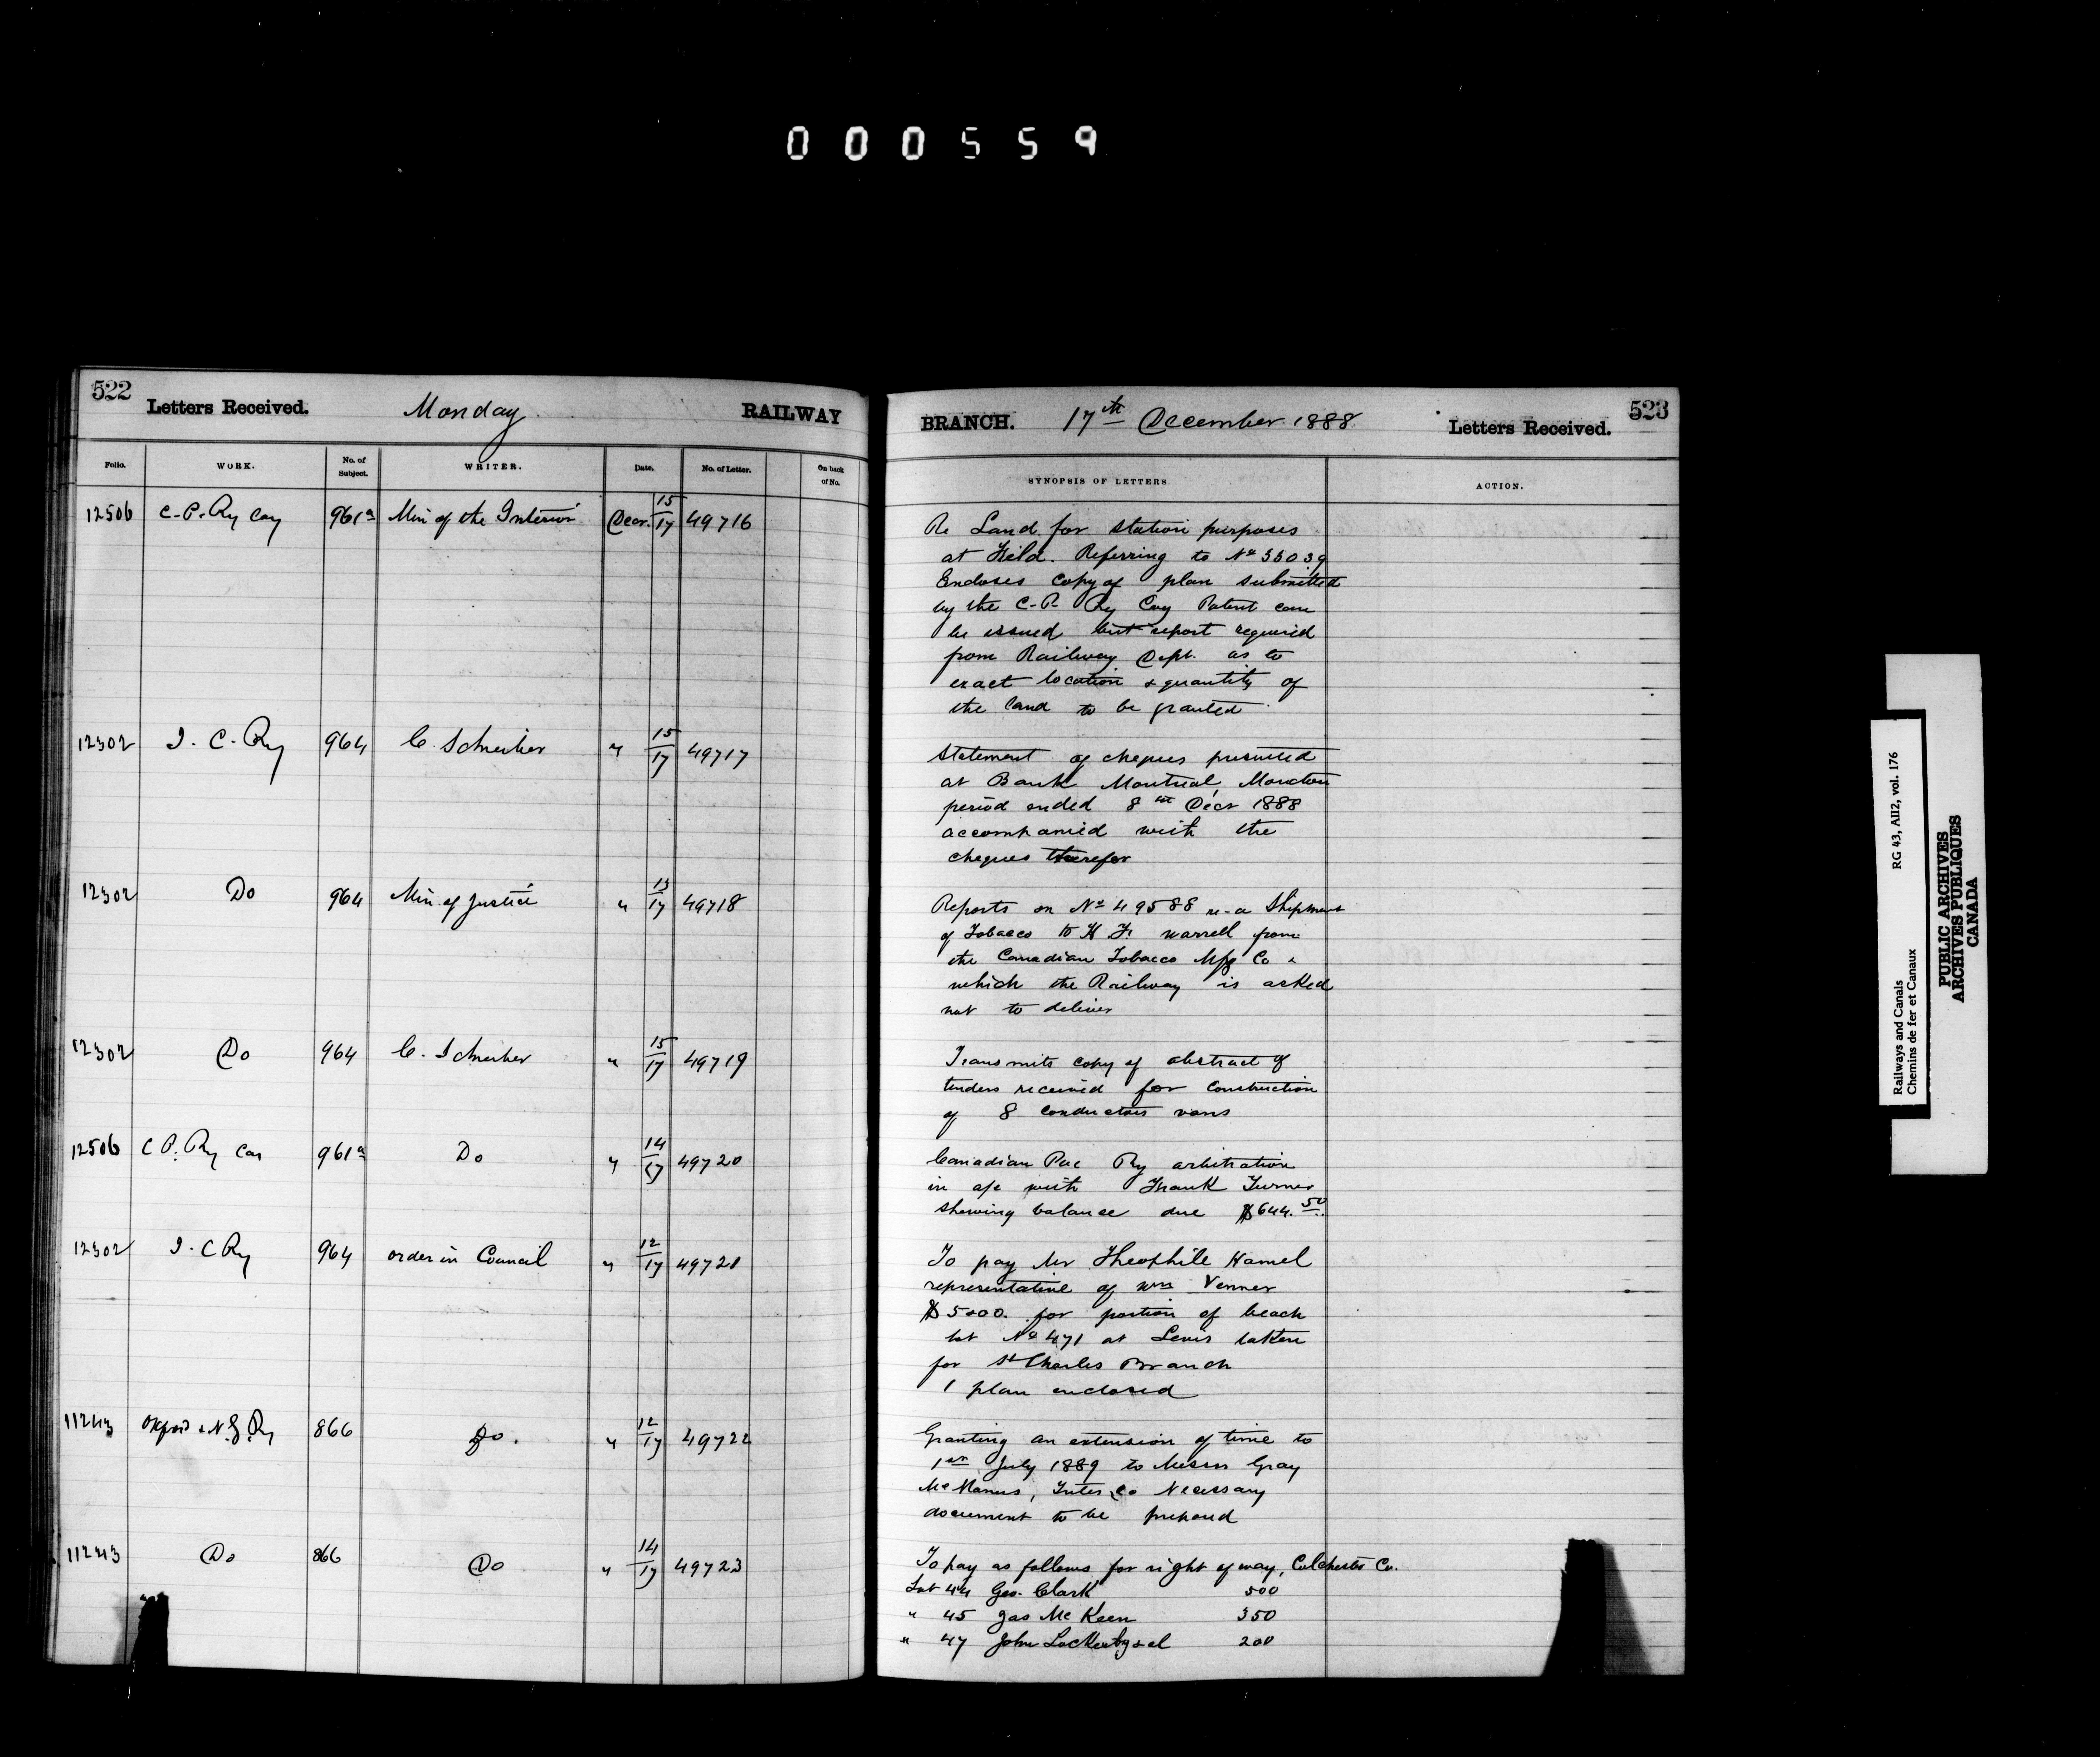 000559
522 Letters Received. Monday RAILWAY
Folio. WORK. No. of Subject. WRITER. Date. No. of Letter. On back of No.
12506 C.P. Ry Coy 961a Min of the Interior Decr. 15/17 49716
12302 I.C. Ry 964 C. Schreiber " 15/17 49717
12302 Do 964 Min of Justice " 13/17 49718
12302 Do 964 C. Schreiber " 15/17 49719
12506 C P. Ry Coy 961a Do " 14/17 49720
12302 I. C Ry 964 order in Council " 12/17 49721
11243 Oxford & N.G. Ry 866 Do. " 12/17 49722
11243 Do 866 Do " 14/17 49723
BRANCH. 17th December 1888. Letters Received. 523
SYNOPSIS OF LETTERS. ACTION.
Re Land for station purposes
at Field. Referring to No 33039
Encloses copy of plan submitted
by the C-P Ry Coy Patent can
be issued but report required
from Railway Dept. as to
exact location & quantity of
the land to be granted
Statement of cheques presented
at Bank Montreal, Moncton
period ended 8th Decr 1888
accompanied with the
cheques therefor
Reports on No 49588 re-a Shipment
of Tobacco to H. F. Warrell from
the Canadian Tobacco Mfg Co &
which the Railway is asked
not to deliver
Transmits copy of abstract of
tenders received for construction
of 8 conductors vans
Canadian Pac Ry arbitration
in a/c with Frank Turner
shewing balance due $644.50.
To pay Mr Theophile Hamel
representative of Wm Venner
$5000. for portion of beach
lot No 471 at Levis taken
for St Charles Branch
1 plan enclosed
Granting an extension of time to
1st July 1889 to Messrs Gray
McManus, Co Necessary
document to be prepared
To pay as follows for right of way, Colchester Co.
Lot 44 Geo. Clark 500
" 45 Jas McKeen 350
" 47 John 200
Railways and Canals RG 43, AII2, vol. 176
Chemins de fer et Canaux
PUBLIC ARCHIVES
ARCHIVES PUBLIQUES
CANADA